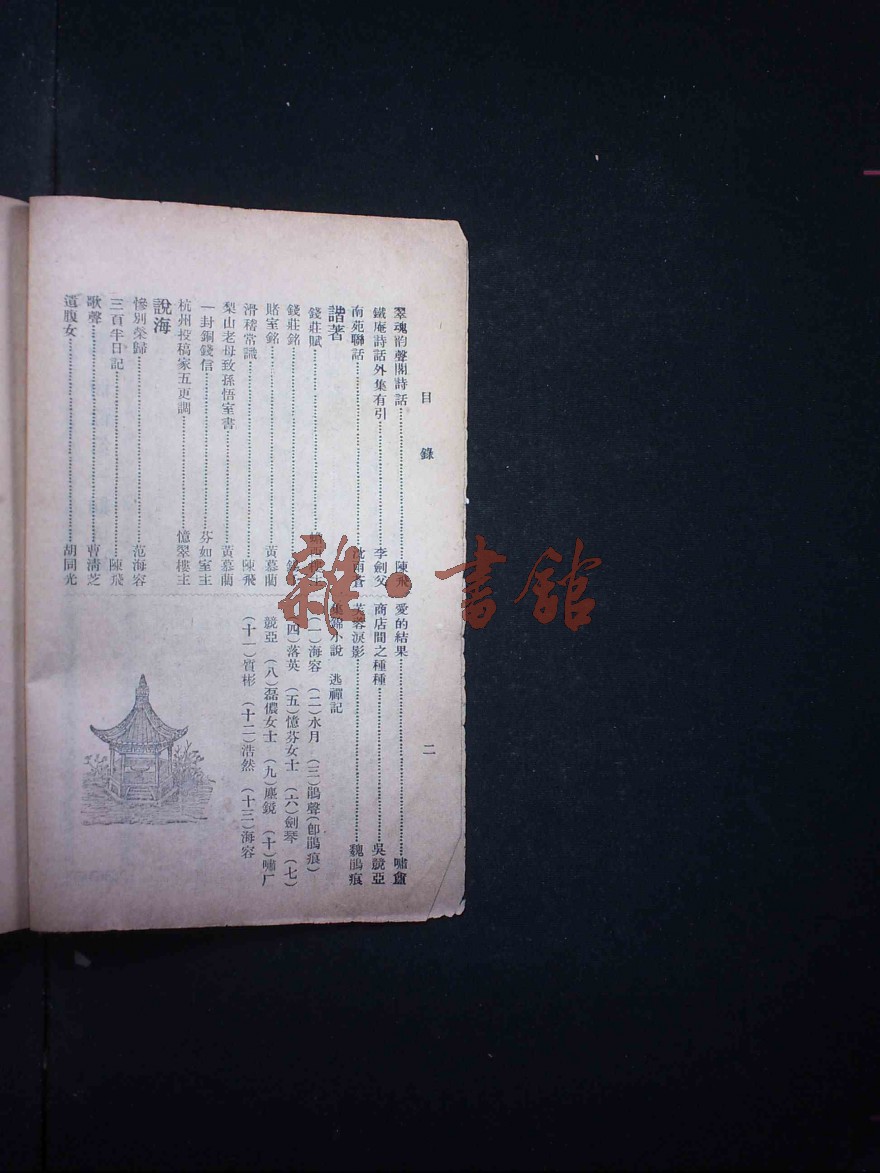 目錄
二
翠魂韵聲閣詩話 陳飛
鐵庵詩話外集有引 李劍父
南苑聯話 沈雨蒼
諧著
錢莊賦 樓主
錢莊銘
賭室銘 黃慕蘭
滑稽常識 陳飛
梨山老母致孫悟室書 黃慕蘭
一封銅錢信 芬如室主
杭州投稿家五更調 憶翠樓主
說海
慘別榮歸 范海容
三百半日記 陳飛
歌聲 曹淸芝
遺腹女 胡同光
愛的結果 嘯盦
商店間之種種 吳競亞
芙蓉淚影 魏鵑痕
集錦小說 逃禪記
(一)海容 (二)水月 (三)鵑聲(卽鵑痕)
(四)落英 (五)憶芬女士 (六)劍琴 (七)
競亞 (八)磊儂女士 (九)塵鏡 (十)嘯厂
(十一)質彬 (十二)浩然 (十三)海容
雜·書館